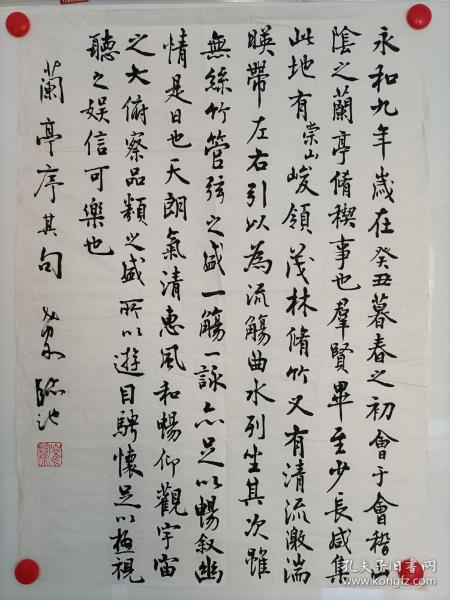 永和九年歲在癸丑暮春之初會于會稽山
陰之蘭亭脩稧事也羣賢畢至少長咸集
此地有崇山峻領茂林脩竹又有清流激湍
暎帶左右引以為流觴曲水列坐其次雖
無絲竹管弦之盛一觴一詠亦足以暢敘幽
情是日也天朗氣清惠風和暢仰觀宇宙
之大俯察品類之盛所以遊目騁懷足以極視
聽之娛信可樂也
蘭亭序其句 臨池
孔夫子旧书网
kongfz.com